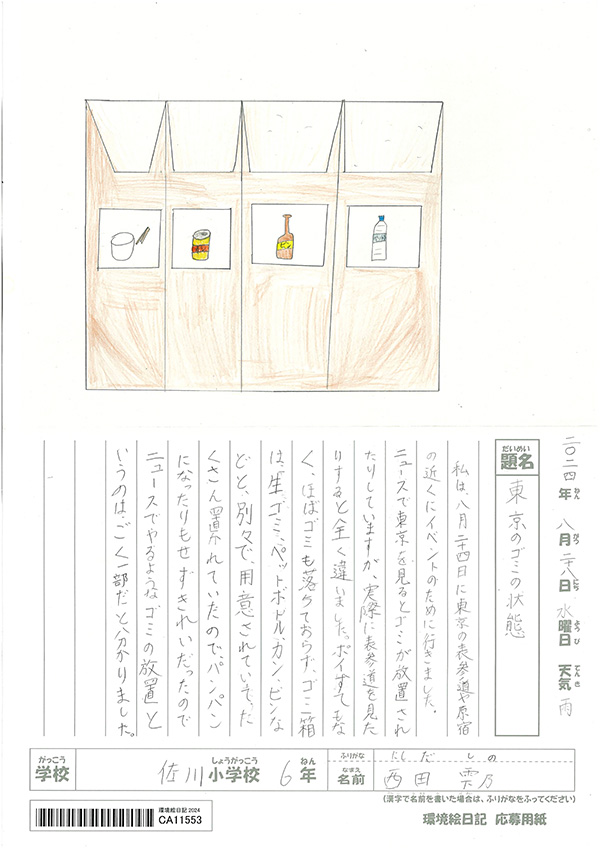 ビン
二〇二四年 八月二八日 水曜日 天気 雨
ねん がつ にち ようび てんき
だいめい
題名
東京のゴミの状態
私は、八月二四日に東京の表参道や原宿
の近くにイベントのために行きました。
ニュースで東京を見るとゴミが放置され
たりしていますが、実際に表参道を見た
りすると全く違いました。ポイすてもな
く、ほぼゴミも落ちておらず、ゴミ箱
は、生ゴミ、ペットボトル、カン、ビンな
どと、別々で、用意されていて、た
くさん置かれていたので、パンパン
になったりもせずきれいだったので
ニュースでやるようなゴミの放置と
いうのは、ごく一部だと分かりました。
がっこう しょうがっこう ねん
学校 佐川小学校 6年
ふりがな にしだ しの
なまえ
名前 西田 雫乃
(漢字で名前を書いた場合は、ふりがなをふってください)
環境絵日記 2024
CA11553
環境絵日記 応募用紙